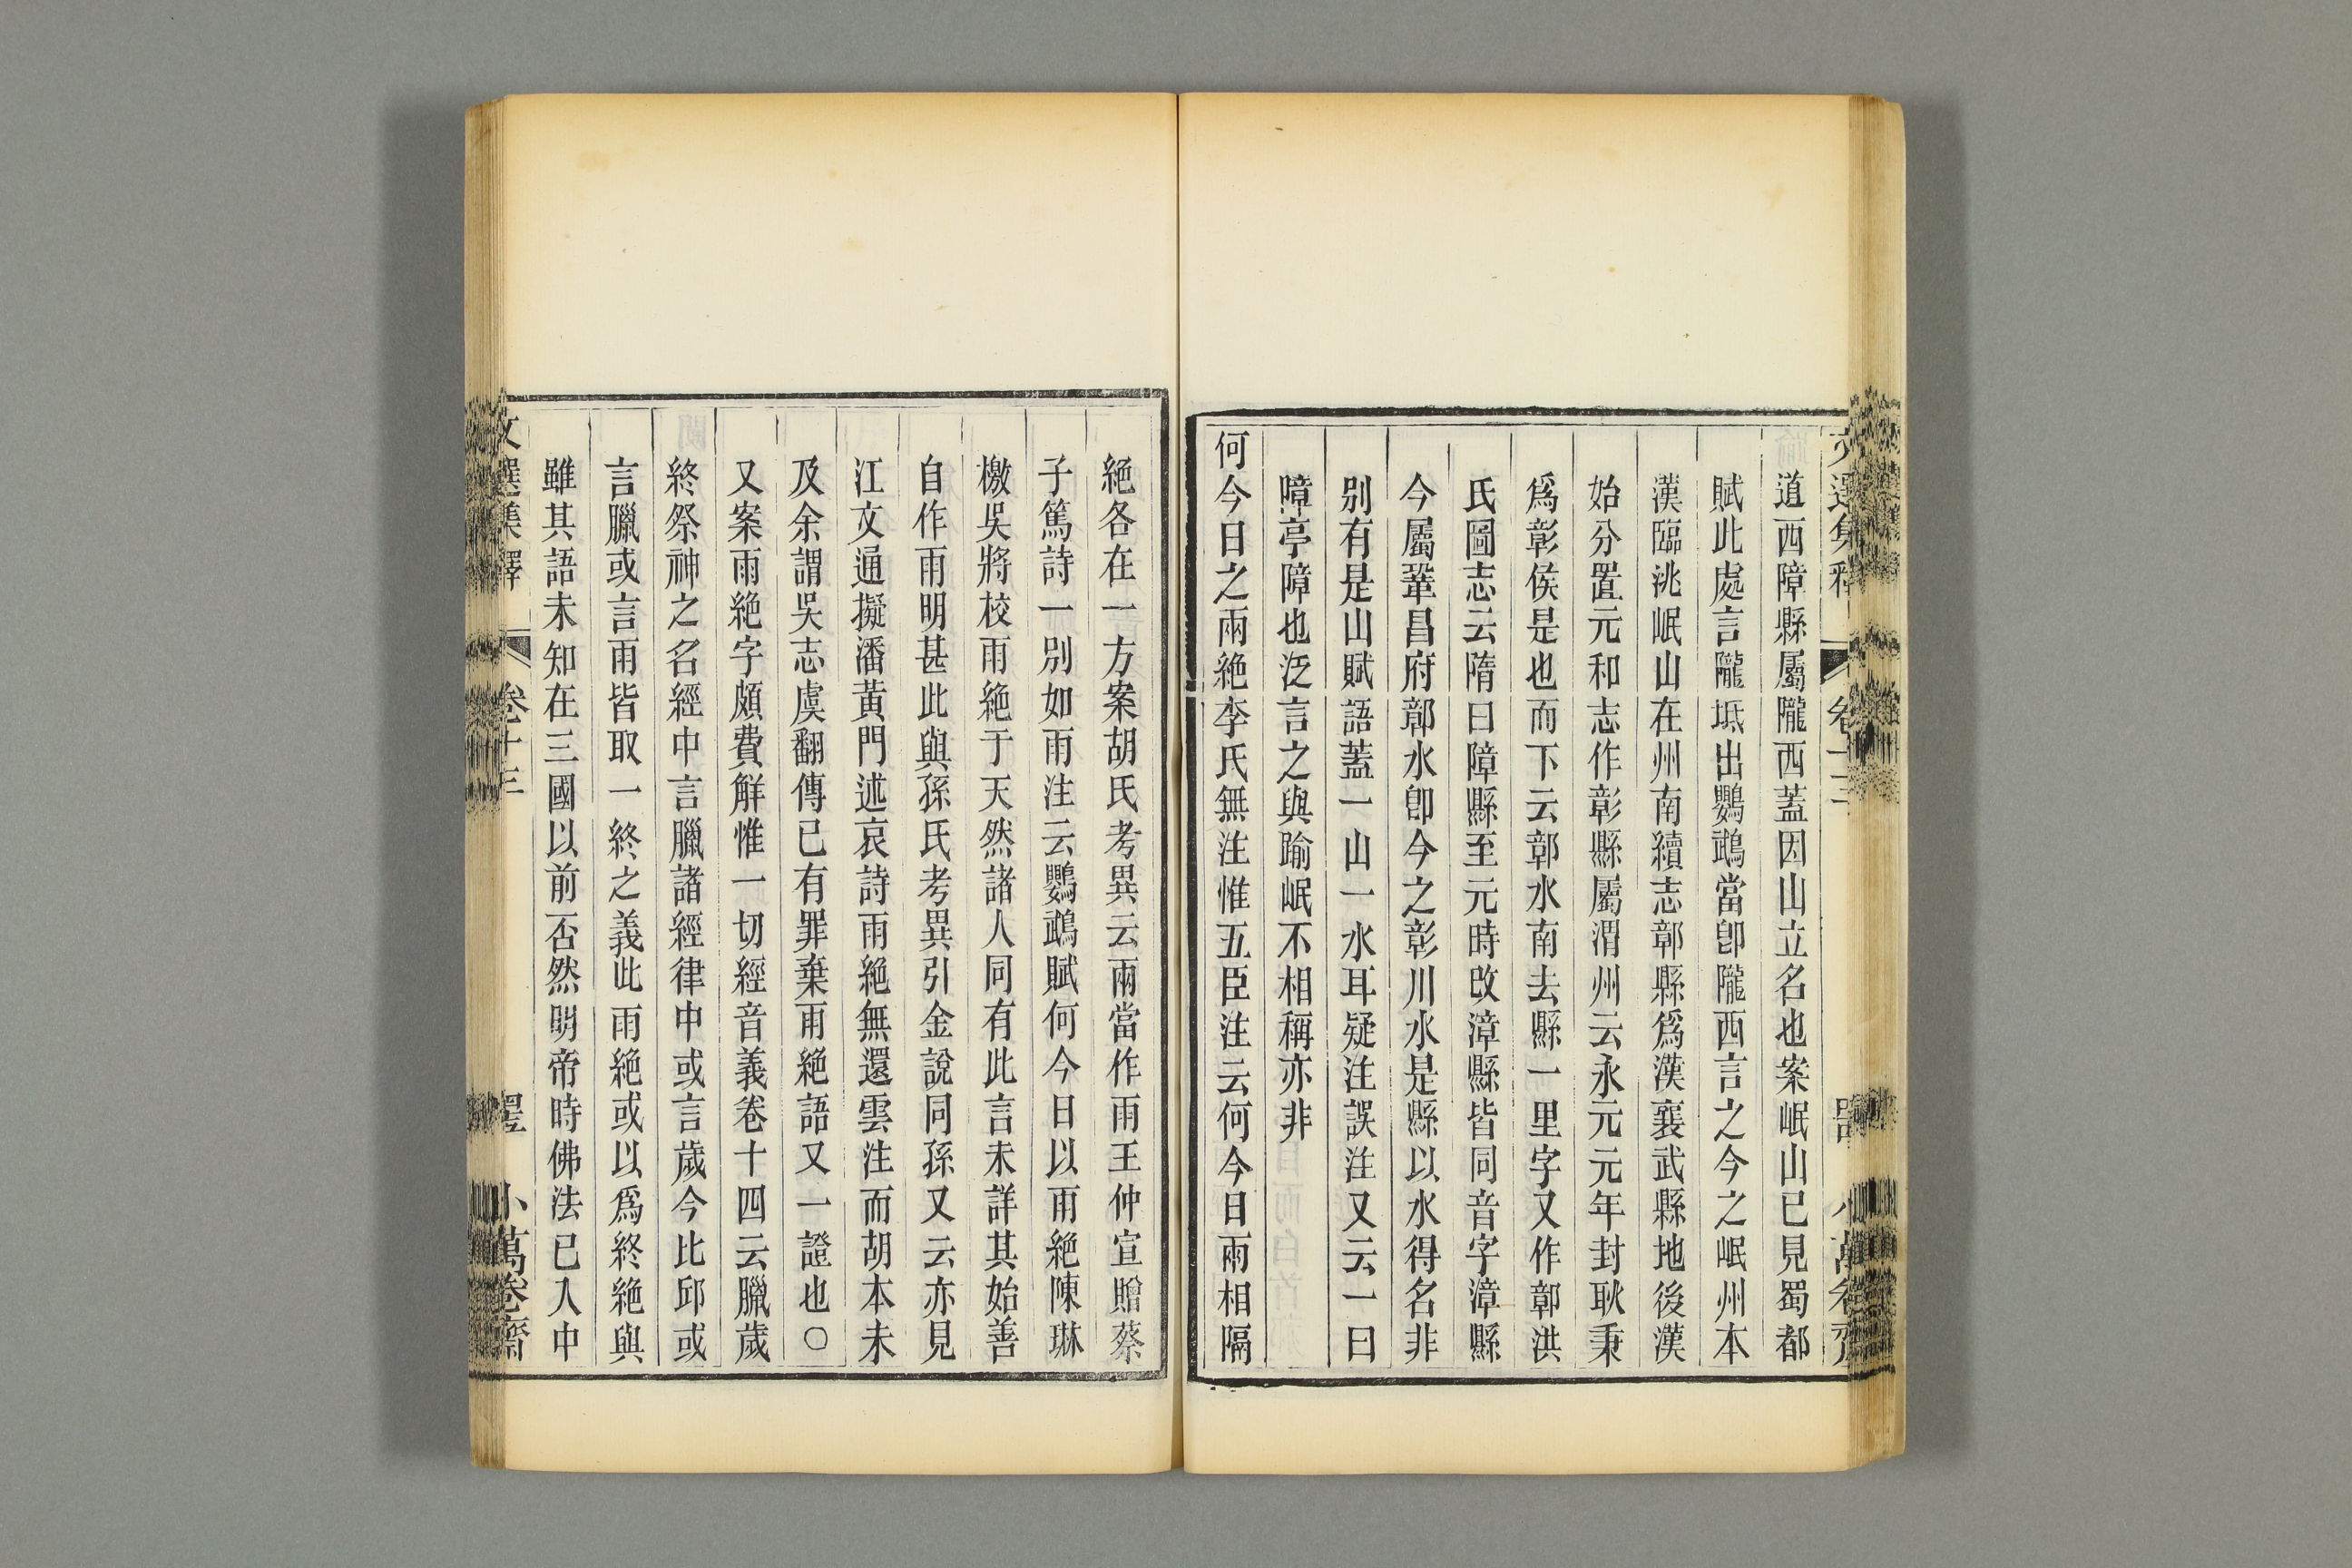 道西障縣屬隴西蓋因山立名也案岷山已見蜀都
賦此處言隴坻出鸚鵡當卽隴西言之今之岷州本
漢臨洮岷山在州南續志鄣縣爲漢襄武縣地後漢
始分置元和志作彰縣屬渭州云永元元年封耿秉
爲彰侯是也而下云鄣水南去縣一里字又作鄣洪
氏圖志云隋曰障縣至元時改漳縣皆同音字漳縣
今屬鞏昌府鄣水卽今之彰川水是縣以水得名非
别有是山賦語蓋一山一水耳疑注誤注又云一曰
障亭障也泛言之與踰岷不相稱亦非
何今日之兩絶李氏無注惟五臣注云何今日兩相隔
絶各在一方案胡氏考異云兩當作雨王仲宣贈蔡
子篤詩一別如雨注云鸚鵡賦何今日以雨絶陳琳
檄吳將校雨絶于天然諸人同有此言未詳其始善
自作雨明甚此與孫氏考異引金說同孫又云亦見
江文通擬潘黃門述哀詩雨絶無還雲注而胡本未
及余謂吳志虞翻傳已有罪棄雨絶語又一證也○
又案雨絶字頗費解惟一切經音義卷十四云臘歲
終祭神之名經中言臘諸經律中或言歲今比邱或
言臘或言雨皆取一終之義此雨絶或以爲終絶與
雖其語未知在三國以前否然明帝時佛法已入中
文選集釋 卷十三 小萬卷齋